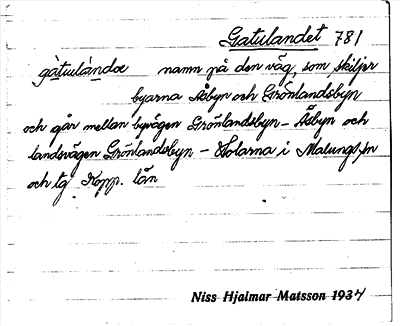 Gatulandet 781
gàtuulàndoe namn på den väg, som skiljer
byarna Åsbyn och Grönlandsbyn
och går mellan byvägen Grönlandsbyn - Åsbyn och
landsvägen Grönlandsbyn - Holarna i Malungs sn
och tg Kopp. län
Niss Hjalmar Matsson 1937